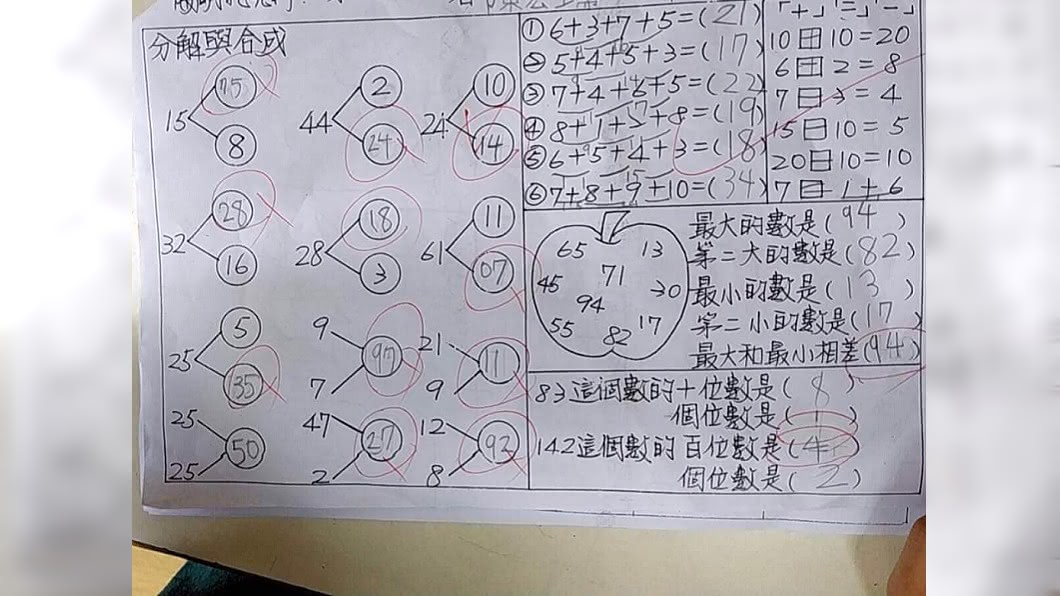 分解與合成
15
15
8
44
2
24
24
10
14
32
28
16
28
18
3
61
11
07
25
5
35
9
7
97
21
9
11
25
25
50
47
2
27
12
8
92
① 6+3+7+5=(21)
② 5+4+5+3=(17)
③ 7+4+6+5=(22)
④ 8+1+3+8=(19)
⑤ 6+5+4+3=(18)
⑥ 7+8+9+10=(34)
「+」「=」「-」
10 + 10 = 20
6 + 2 = 8
7 - 3 = 4
15 - 10 = 5
20 - 10 = 10
7 = 1 + 6
65 13
45 71 30
94
55 82 17
最大的數是(94)
第二大的數是(82)
最小的數是(13)
第二小的數是(17)
最大和最小相差(94)
83這個數的十位數是(8)
個位數是(1)
142這個數的百位數是(4)
個位數是(2)